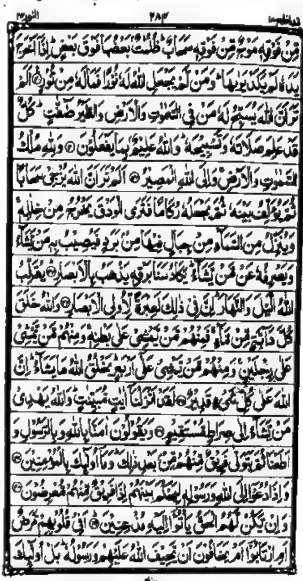 النور ٢٤ ٢٨٤ قد افلح ١٨
مِّنْ فَوْقِهٖ مَوْجٌ مِّنْ فَوْقِهٖ سَحَابٌ ؕ ظُلُمٰتٌۢ بَعْضُهَا فَوْقَ بَعْضٍ ؕ اِذَاۤ اَخْرَجَ
يَدَهٗ لَمْ يَكَدْ يَرٰىهَا ؕ وَمَنْ لَّمْ يَجْعَلِ اللّٰهُ لَهٗ نُوْرًا فَمَا لَهٗ مِنْ نُّوْرٍ ۞ اَلَمْ
تَرَ اَنَّ اللّٰهَ يُسَبِّحُ لَهٗ مَنْ فِى السَّمٰوٰتِ وَالْاَرْضِ وَالطَّيْرُ صٰٓفّٰتٍ ؕ كُلٌّ
قَدْ عَلِمَ صَلَاتَهٗ وَتَسْبِيْحَهٗ ؕ وَاللّٰهُ عَلِيْمٌۢ بِمَا يَفْعَلُوْنَ ۞ وَلِلّٰهِ مُلْكُ
السَّمٰوٰتِ وَالْاَرْضِ ۚ وَاِلَى اللّٰهِ الْمَصِيْرُ ۞ اَلَمْ تَرَ اَنَّ اللّٰهَ يُزْجِىْ سَحَابًا
ثُمَّ يُؤَلِّفُ بَيْنَهٗ ثُمَّ يَجْعَلُهٗ رُكَامًا فَتَرَى الْوَدْقَ يَخْرُجُ مِنْ خِلٰلِهٖ ۚ
وَيُنَزِّلُ مِنَ السَّمَآءِ مِنْ جِبَالٍ فِيْهَا مِنْۢ بَرَدٍ فَيُصِيْبُ بِهٖ مَنْ يَّشَآءُ
وَيَصْرِفُهٗ عَنْ مَّنْ يَّشَآءُ ؕ يَكَادُ سَنَا بَرْقِهٖ يَذْهَبُ بِالْاَبْصَارِ ۞ يُقَلِّبُ
اللّٰهُ الَّيْلَ وَالنَّهَارَ ؕ اِنَّ فِىْ ذٰلِكَ لَعِبْرَةً لِّاُولِى الْاَبْصَارِ ۞ وَاللّٰهُ خَلَقَ
كُلَّ دَآبَّةٍ مِّنْ مَّآءٍ ۚ فَمِنْهُمْ مَّنْ يَّمْشِىْ عَلٰى بَطْنِهٖ ۚ وَمِنْهُمْ مَّنْ يَّمْشِىْ
عَلٰى رِجْلَيْنِ ۚ وَمِنْهُمْ مَّنْ يَّمْشِىْ عَلٰۤى اَرْبَعٍ ؕ يَخْلُقُ اللّٰهُ مَا يَشَآءُ ؕ اِنَّ
اللّٰهَ عَلٰى كُلِّ شَىْءٍ قَدِيْرٌ ۞ لَقَدْ اَنْزَلْنَاۤ اٰيٰتٍ مُّبَيِّنٰتٍ ؕ وَاللّٰهُ يَهْدِىْ
مَنْ يَّشَآءُ اِلٰى صِرَاطٍ مُّسْتَقِيْمٍ ۞ وَيَقُوْلُوْنَ اٰمَنَّا بِاللّٰهِ وَبِالرَّسُوْلِ وَ
اَطَعْنَا ثُمَّ يَتَوَلّٰى فَرِيْقٌ مِّنْهُمْ مِّنْۢ بَعْدِ ذٰلِكَ ؕ وَمَاۤ اُولٰٓئِكَ بِالْمُؤْمِنِيْنَ ۞
وَاِذَا دُعُوْۤا اِلَى اللّٰهِ وَرَسُوْلِهٖ لِيَحْكُمَ بَيْنَهُمْ اِذَا فَرِيْقٌ مِّنْهُمْ مُّعْرِضُوْنَ ۞
وَاِنْ يَّكُنْ لَّهُمُ الْحَقُّ يَاْتُوْۤا اِلَيْهِ مُذْعِنِيْنَ ۞ اَفِىْ قُلُوْبِهِمْ مَّرَضٌ
اَمِ ارْتَابُوْۤا اَمْ يَخَافُوْنَ اَنْ يَّحِيْفَ اللّٰهُ عَلَيْهِمْ وَرَسُوْلُهٗ ؕ بَلْ اُولٰٓئِكَ